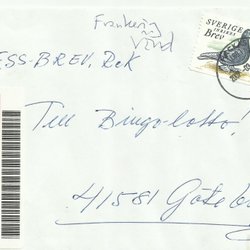 Frankering
ej
vänd
SVERIGE
INRIKES
Brev
ESS-BREV, Dek
Till Bingo-lotto!
41581 Göteb